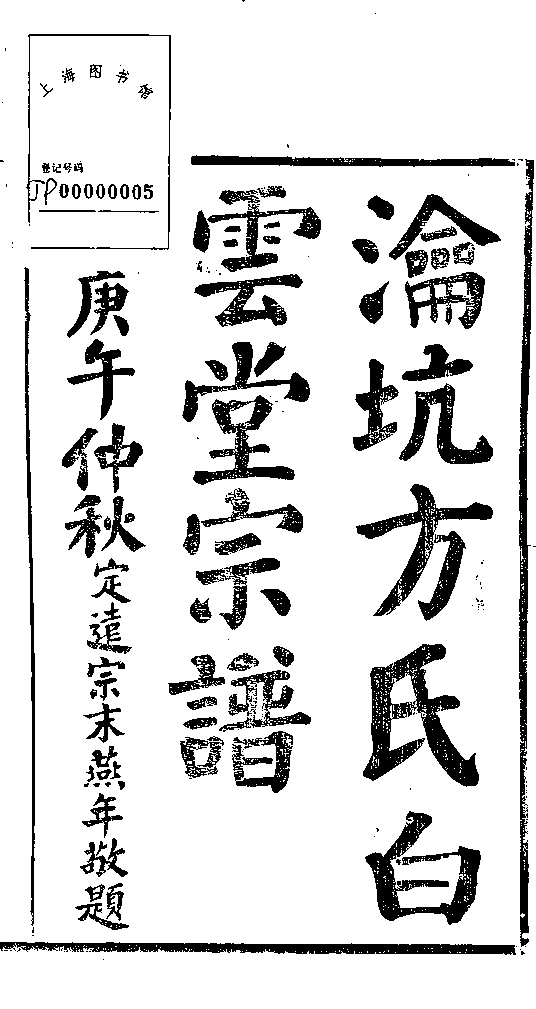 上海图书馆
登记号码
JP00000005
瀹坑方氏白
雲堂宗譜
庚午仲秋定遠宗末燕年敬題